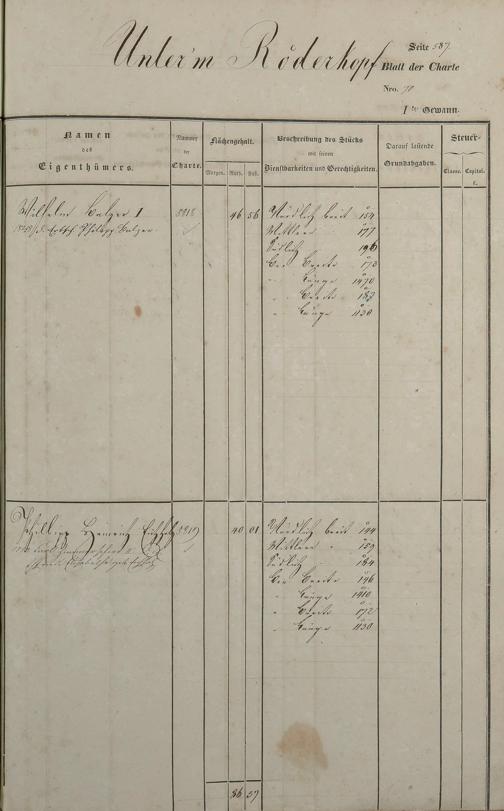 Unter'm Röderkopf
Seite 587
Blatt der Charte
Nro. 70
1te Gewann.
Namen
des
Eigenthümers.
Nummer
der
Charte.
Flächengehalt.
Morgen. Ruth. Fuß.
Beschreibung des Stücks
mit seinen
Dienstbarkeiten und Gerechtigkeiten.
Darauf lastende
Grundabgaben.
Steuer-
Classe. Capital.
f.
Wilhelm Balzer I 5918 46 56 Nördlich breit 154
Philipp Balzer Mittlere 177
Südlich 196
Breite 173
" Länge 1470
" Breite 187
" Länge 1130
Phillipp Heinrich 5919 40 01 Nördlich breit 144
Mittlere " 159
Südlich 164
Breite 146
" Länge 1410
" Breite 172
" Länge 1130
86 57